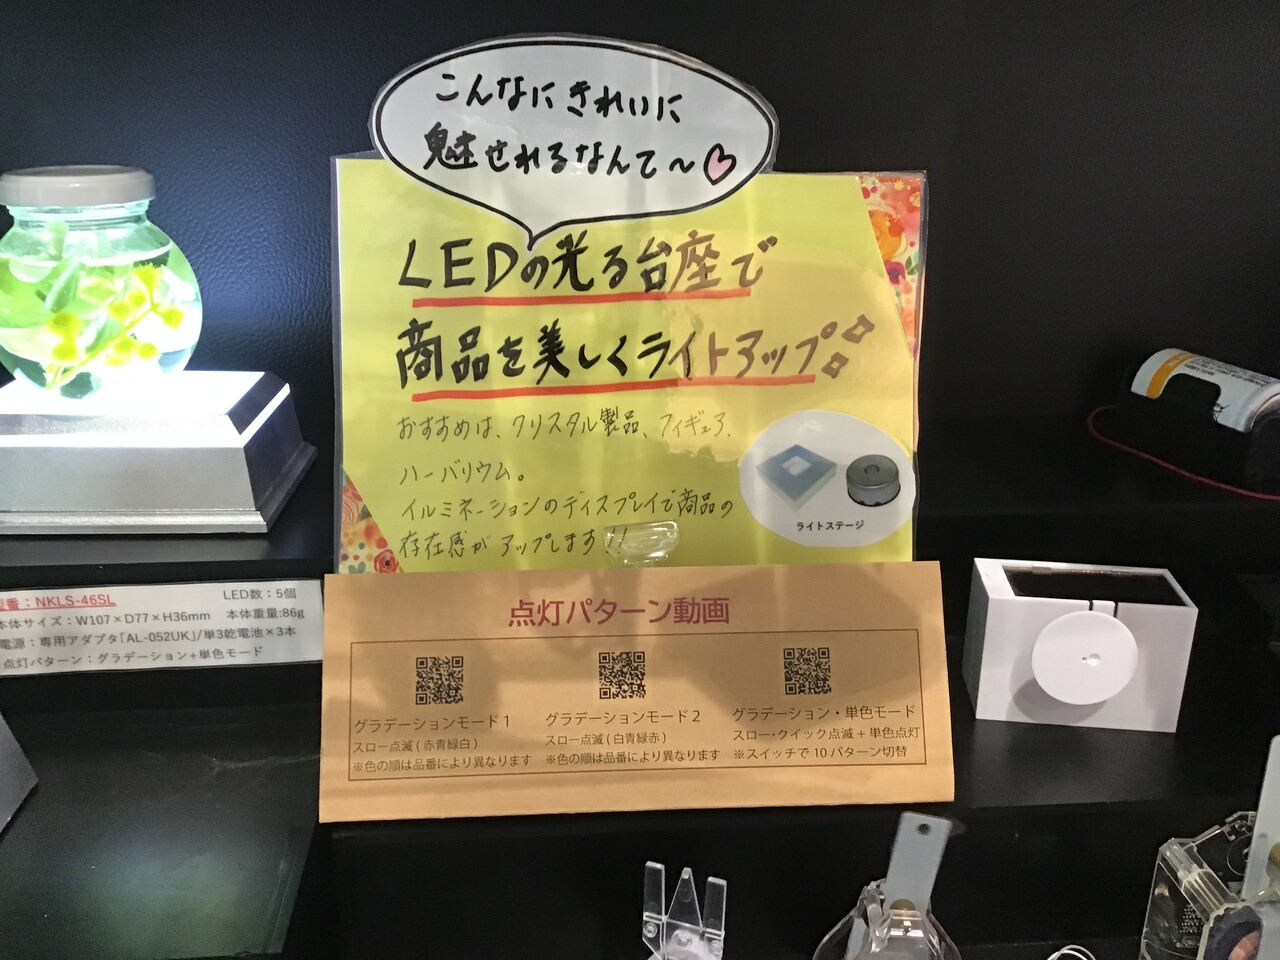 こんなにきれいに
魅せれるなんて〜♡
LEDの光る台座で
商品を美しくライトアップ
おすすめは、クリスタル製品、フィギュア、
ハーバリウム。
イルミネーションのディスプレイで商品の
存在感がアップします!!
ライトステージ
型番:NKLS-46SL LED数:5個
本体サイズ:W107×D77×H36mm 本体重量:86g
電源:専用アダプタ「AL-052UK」/単3乾電池×3本
点灯パターン:グラデーション+単色モード
点灯パターン動画
グラデーションモード1
スロー点滅(赤青緑白)
※色の順は品番により異なります
グラデーションモード2
スロー点滅(白青緑赤)
※色の順は品番により異なります
グラデーション・単色モード
スロー・クイック点滅+単色点灯
※スイッチで10パターン切替